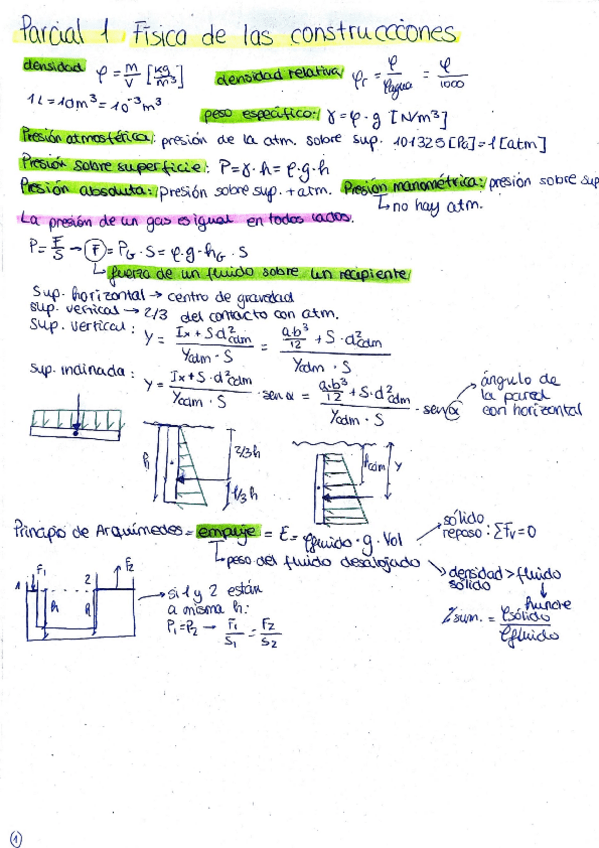 Parcial 1 Física de las construcciones
densidad φ = m/V [kg/m³] densidad relativa φr = φ/φagua = φ/1000
1L = 1dm³ = 10⁻³m³
peso específico: γ = φ·g [N/m³]
Presión atmosférica: presión de la atm. sobre sup. 101325 [Pa] = 1 [atm]
Presión sobre superficie: P = γ·h = φ·g·h
Presión absoluta: presión sobre sup. + atm. Presión manométrica: presión sobre sup
↳ no hay atm.
La presión de un gas es igual en todos lados.
P = F/S → F = PG·S = φ·g·hG·S
↳ fuerza de un fluido sobre un recipiente
Sup. horizontal → centro de gravedad
sup. vertical → 2/3 del contacto con atm.
sup. vertical: Y = (Ix + S·d²cdm)/(Ycdm·S) = (a·b³/12 + S·d²cdm)/(Ycdm·S)
sup. inclinada: Y = (Ix + S·d²cdm)/(Ycdm·S) · sen α = (a·b³/12 + S·d²cdm)/(Ycdm·S) · sen α → ángulo de la pared con horizontal
h 2/3h 1/3h
hcdm Y
Principio de Arquímedes = empuje = E = φfluido · g · Vol → sólido reposo: ΣFv = 0
↳ peso del fluido desalojado ↘ densidad sólido > fluido
↓ hunde
% sum. = φsólido/φfluido
1 F1 h 2 h F2
→ si 1 y 2 están
a misma h:
P1 = P2 → F1/S1 = F2/S2
1